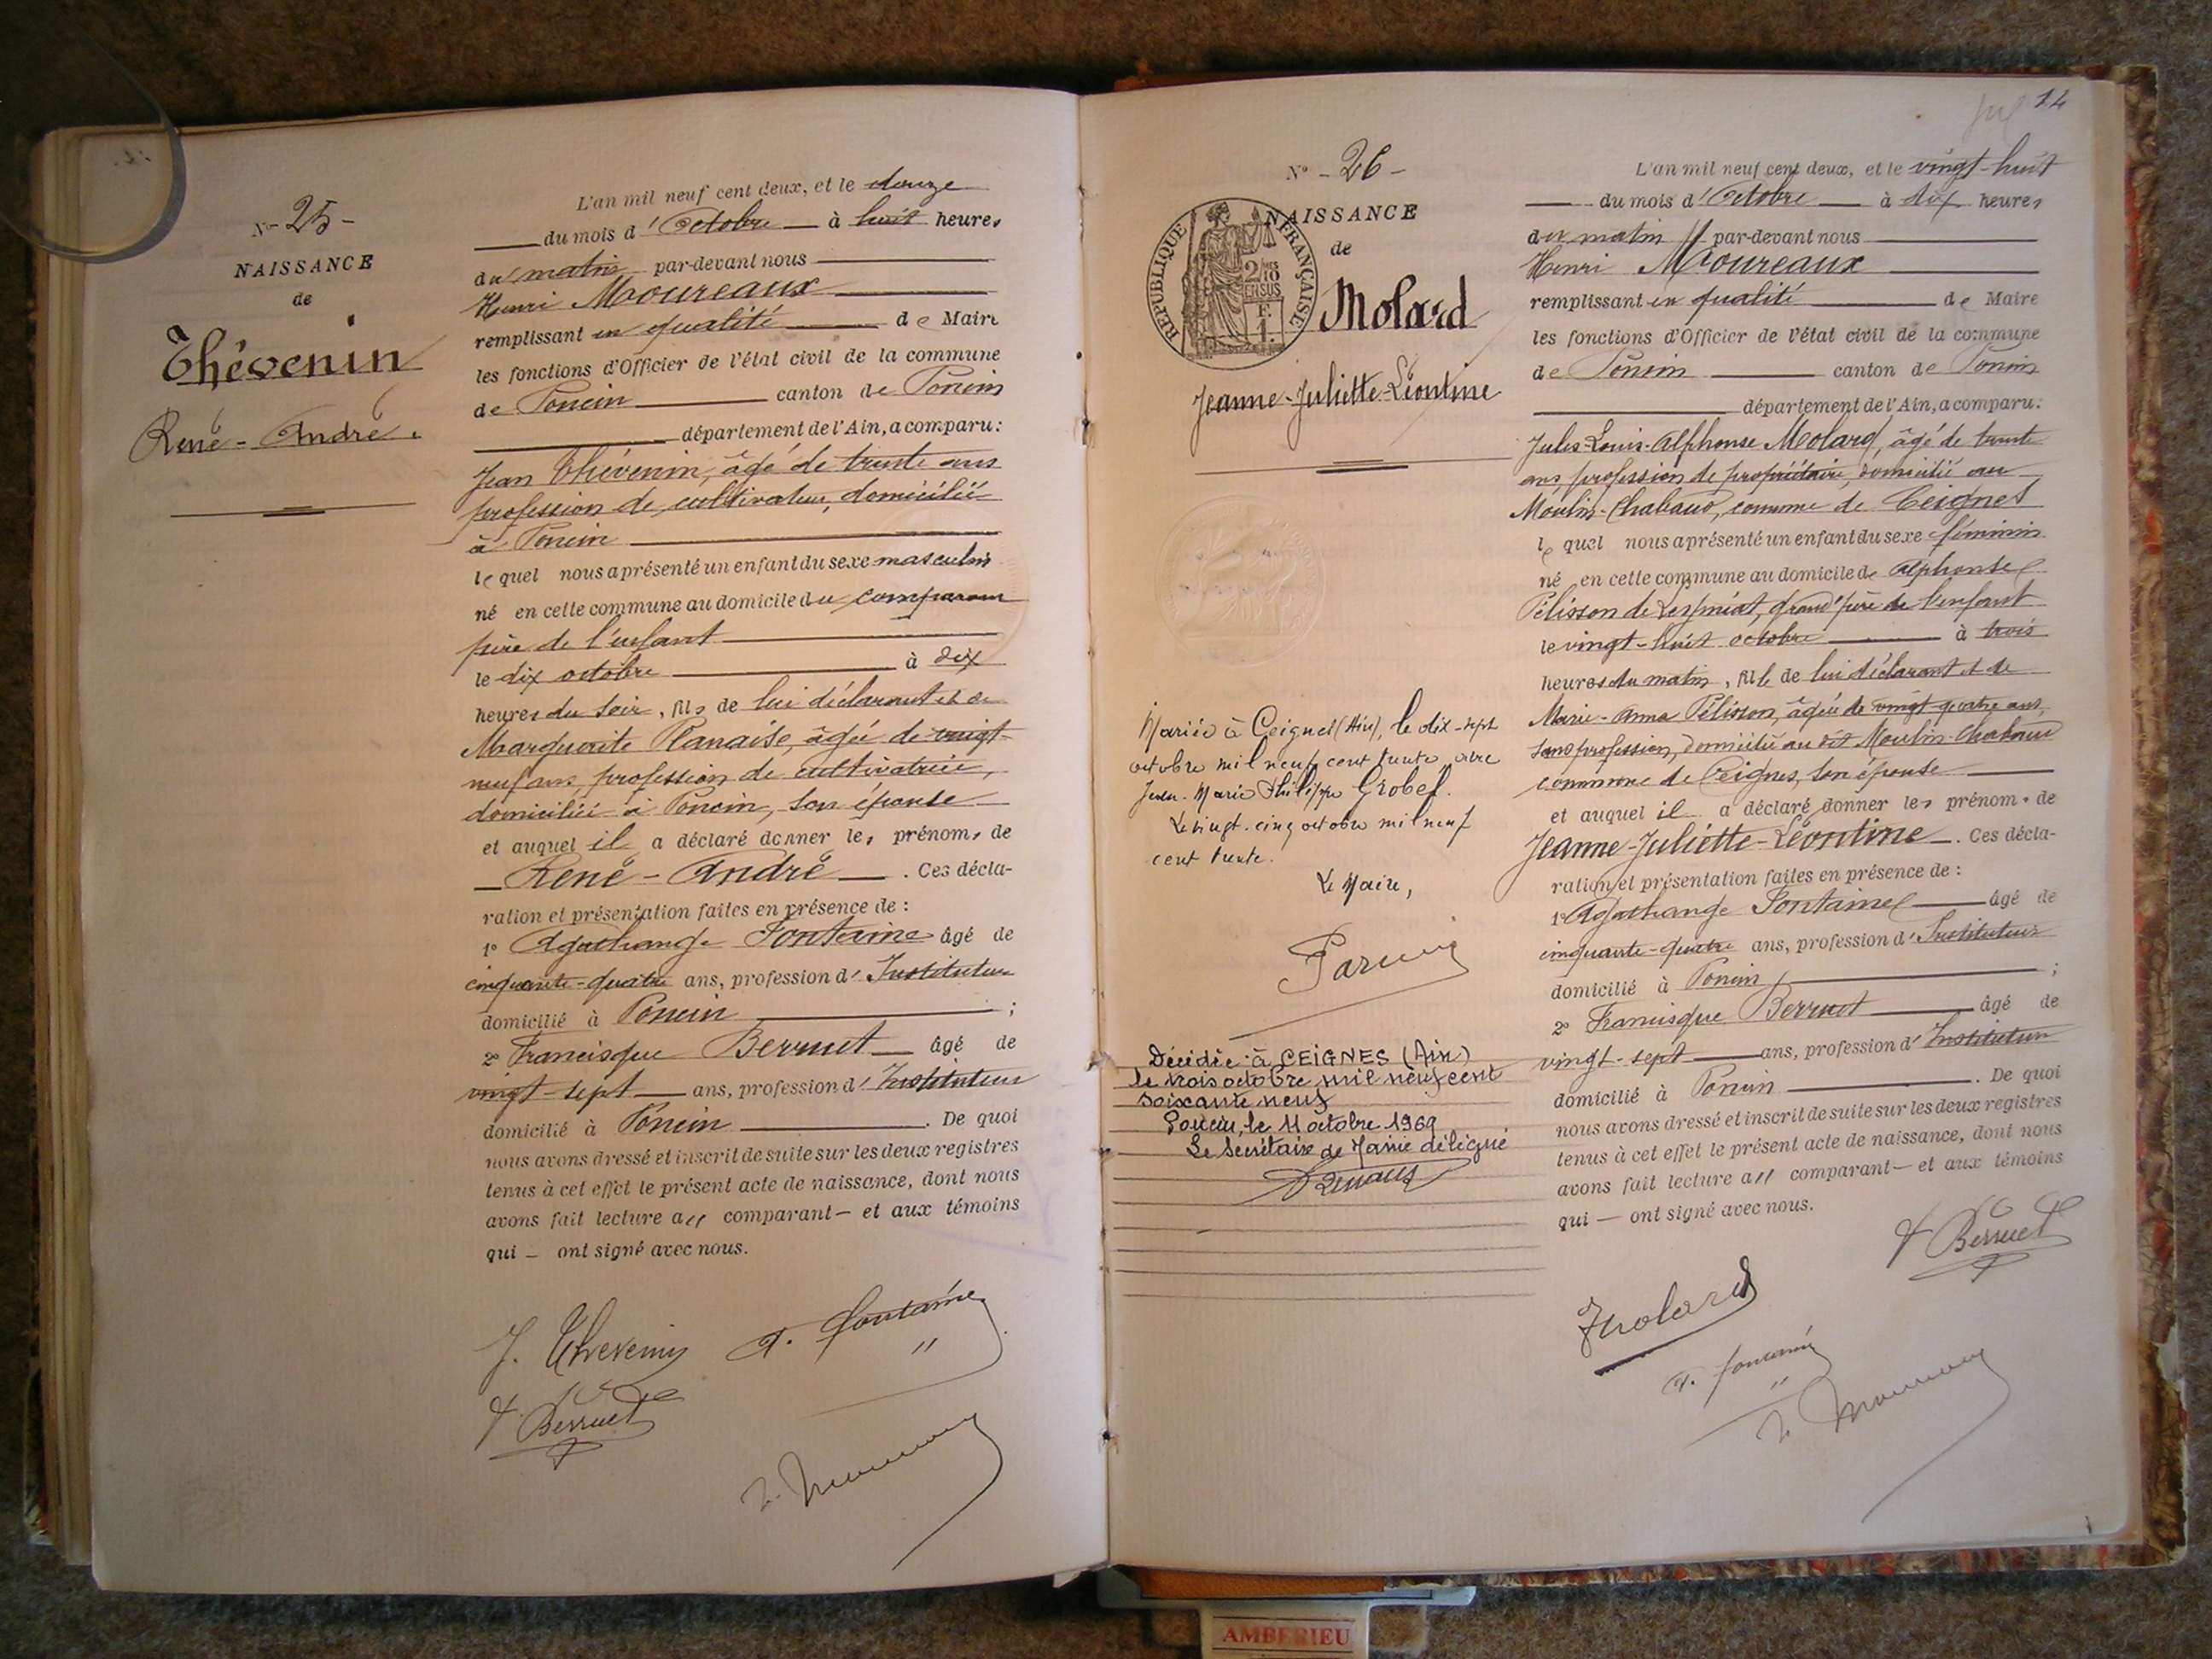 N° - 25 -
NAISSANCE
de
Thévenin
René - André.
L'an mil neuf cent deux, et le douze
du mois d'Octobre à huit heures
du matin par-devant nous
Henri Moureaux
remplissant en qualité de Maire
les fonctions d'Officier de l'état civil de la commune
de Poncin canton de Poncin
département de l'Ain, a comparu:
Jean Thévenin, âgé de trente ans
profession de cultivateur, domicilié
à Poncin
lequel nous a présenté un enfant du sexe masculin
né en cette commune au domicile du comparant
père de l'enfant
le dix octobre à dix
heures du soir, fils de lui déclarant et de
Marguerite Planaise, âgée de vingt-
neuf ans, profession de cultivatrice,
domiciliée à Poncin, son épouse
et auquel il a déclaré donner les prénoms de
René - André. Ces décla-
ration et présentation faites en présence de :
1° Agathange Fontaine âgé de
cinquante-quatre ans, profession d'Instituteur
domicilié à Poncin ;
2° Francisque Berruet âgé de
vingt-sept ans, profession d'Instituteur
domicilié à Poncin. De quoi
nous avons dressé et inscrit de suite sur les deux registres
tenus à cet effet le présent acte de naissance, dont nous
avons fait lecture au comparant — et aux témoins
qui — ont signé avec nous.
J. Thevenin A. Fontaine
F. Berruet
14
N° - 26 -
NAISSANCE
de
REPUBLIQUE FRANÇAISE
2/10 EN SUS
F.
1.
Molard
Jeanne-Juliette-Léontine
Mariée à Ceignes (Ain), le dix-sept
octobre mil neuf cent trente avec
Jean-Marie Philippe Grobel.
Le vingt-cinq octobre mil neuf
cent trente.
Le Maire,
Décédée à CEIGNES (Ain)
le trois octobre mil neuf cent
soixante neuf
Poncin, le 11 octobre 1969
Le Secrétaire de Mairie délégué
L'an mil neuf cent deux, et le vingt-huit
du mois d'Octobre à dix heures
du matin par-devant nous
Henri Moureaux
remplissant en qualité de Maire
les fonctions d'Officier de l'état civil de la commune
de Poncin canton de Poncin
département de l'Ain, a comparu:
Jules-Louis-Alphonse Molard, âgé de trente
ans, profession de propriétaire, domicilié au
Moulin-Chabaud, commune de Ceignes
lequel nous a présenté un enfant du sexe féminin
né en cette commune au domicile de Alphonse
Pélisson de grand'père de l'enfant
le vingt-huit octobre à trois
heures du matin, fille de lui déclarant et de
Marie-Anna Pélisson, âgée de vingt quatre ans,
sans profession, domiciliée au dit Moulin-Chabaud
commune de Ceignes, son épouse
et auquel il a déclaré donner les prénoms de
Jeanne-Juliette-Léontine. Ces décla-
ration et présentation faites en présence de :
1° Agathange Fontaine âgé de
cinquante-quatre ans, profession d'Instituteur
domicilié à Poncin ;
2° Francisque Berruet âgé de
vingt-sept ans, profession d'Instituteur
domicilié à Poncin. De quoi
nous avons dressé et inscrit de suite sur les deux registres
tenus à cet effet le présent acte de naissance, dont nous
avons fait lecture au comparant — et aux témoins
qui — ont signé avec nous.
F. Berruet
Molard
A. Fontaine
AMBERIEU